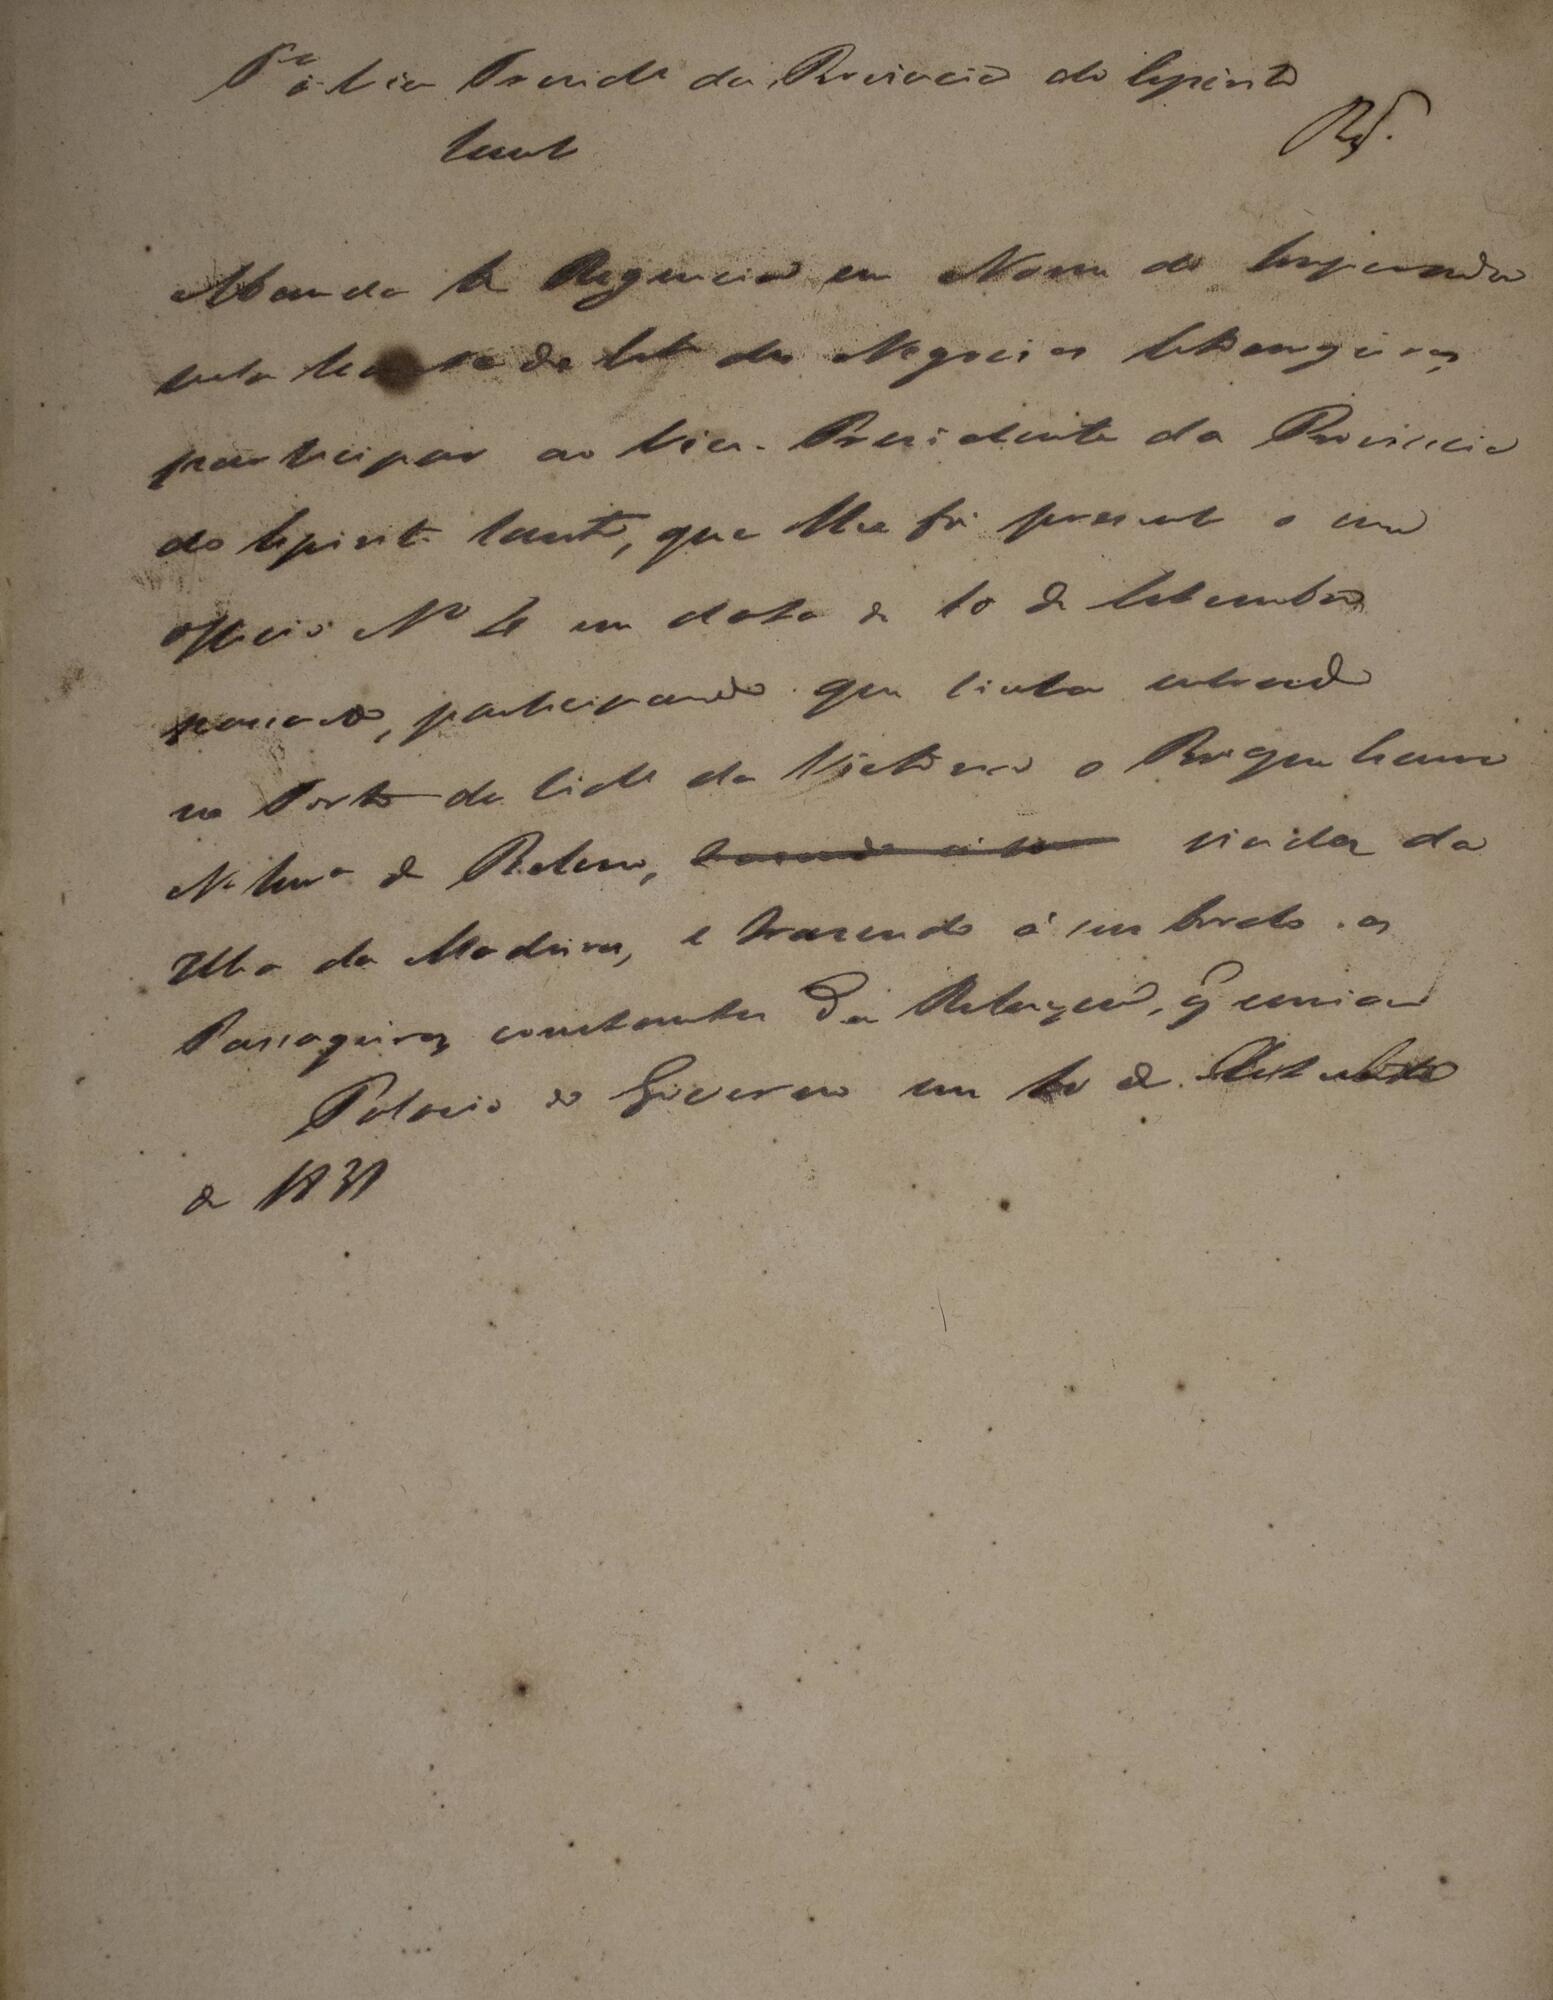 Pa o Vice Preside da Provincia do Espirito
Santo
Rg.
Manda a Regencia em Nome do Imperador
pela Secr de Est dos Negocios Estrangeiros
participar ao Vice-Presidente da Provincia
do Espirito Santo, que lhe foi presente o seu
officio No 4 em data de 10 de Setembro
passado, participando que tinha entrado
no Porto da Cide da Victoria o Brigue
de vinda da
Ilha da Madeira, e trazendo á seu bordo os
Passageiros constantes da Relação, q enviou
Palacio do Governo em de
de 1831